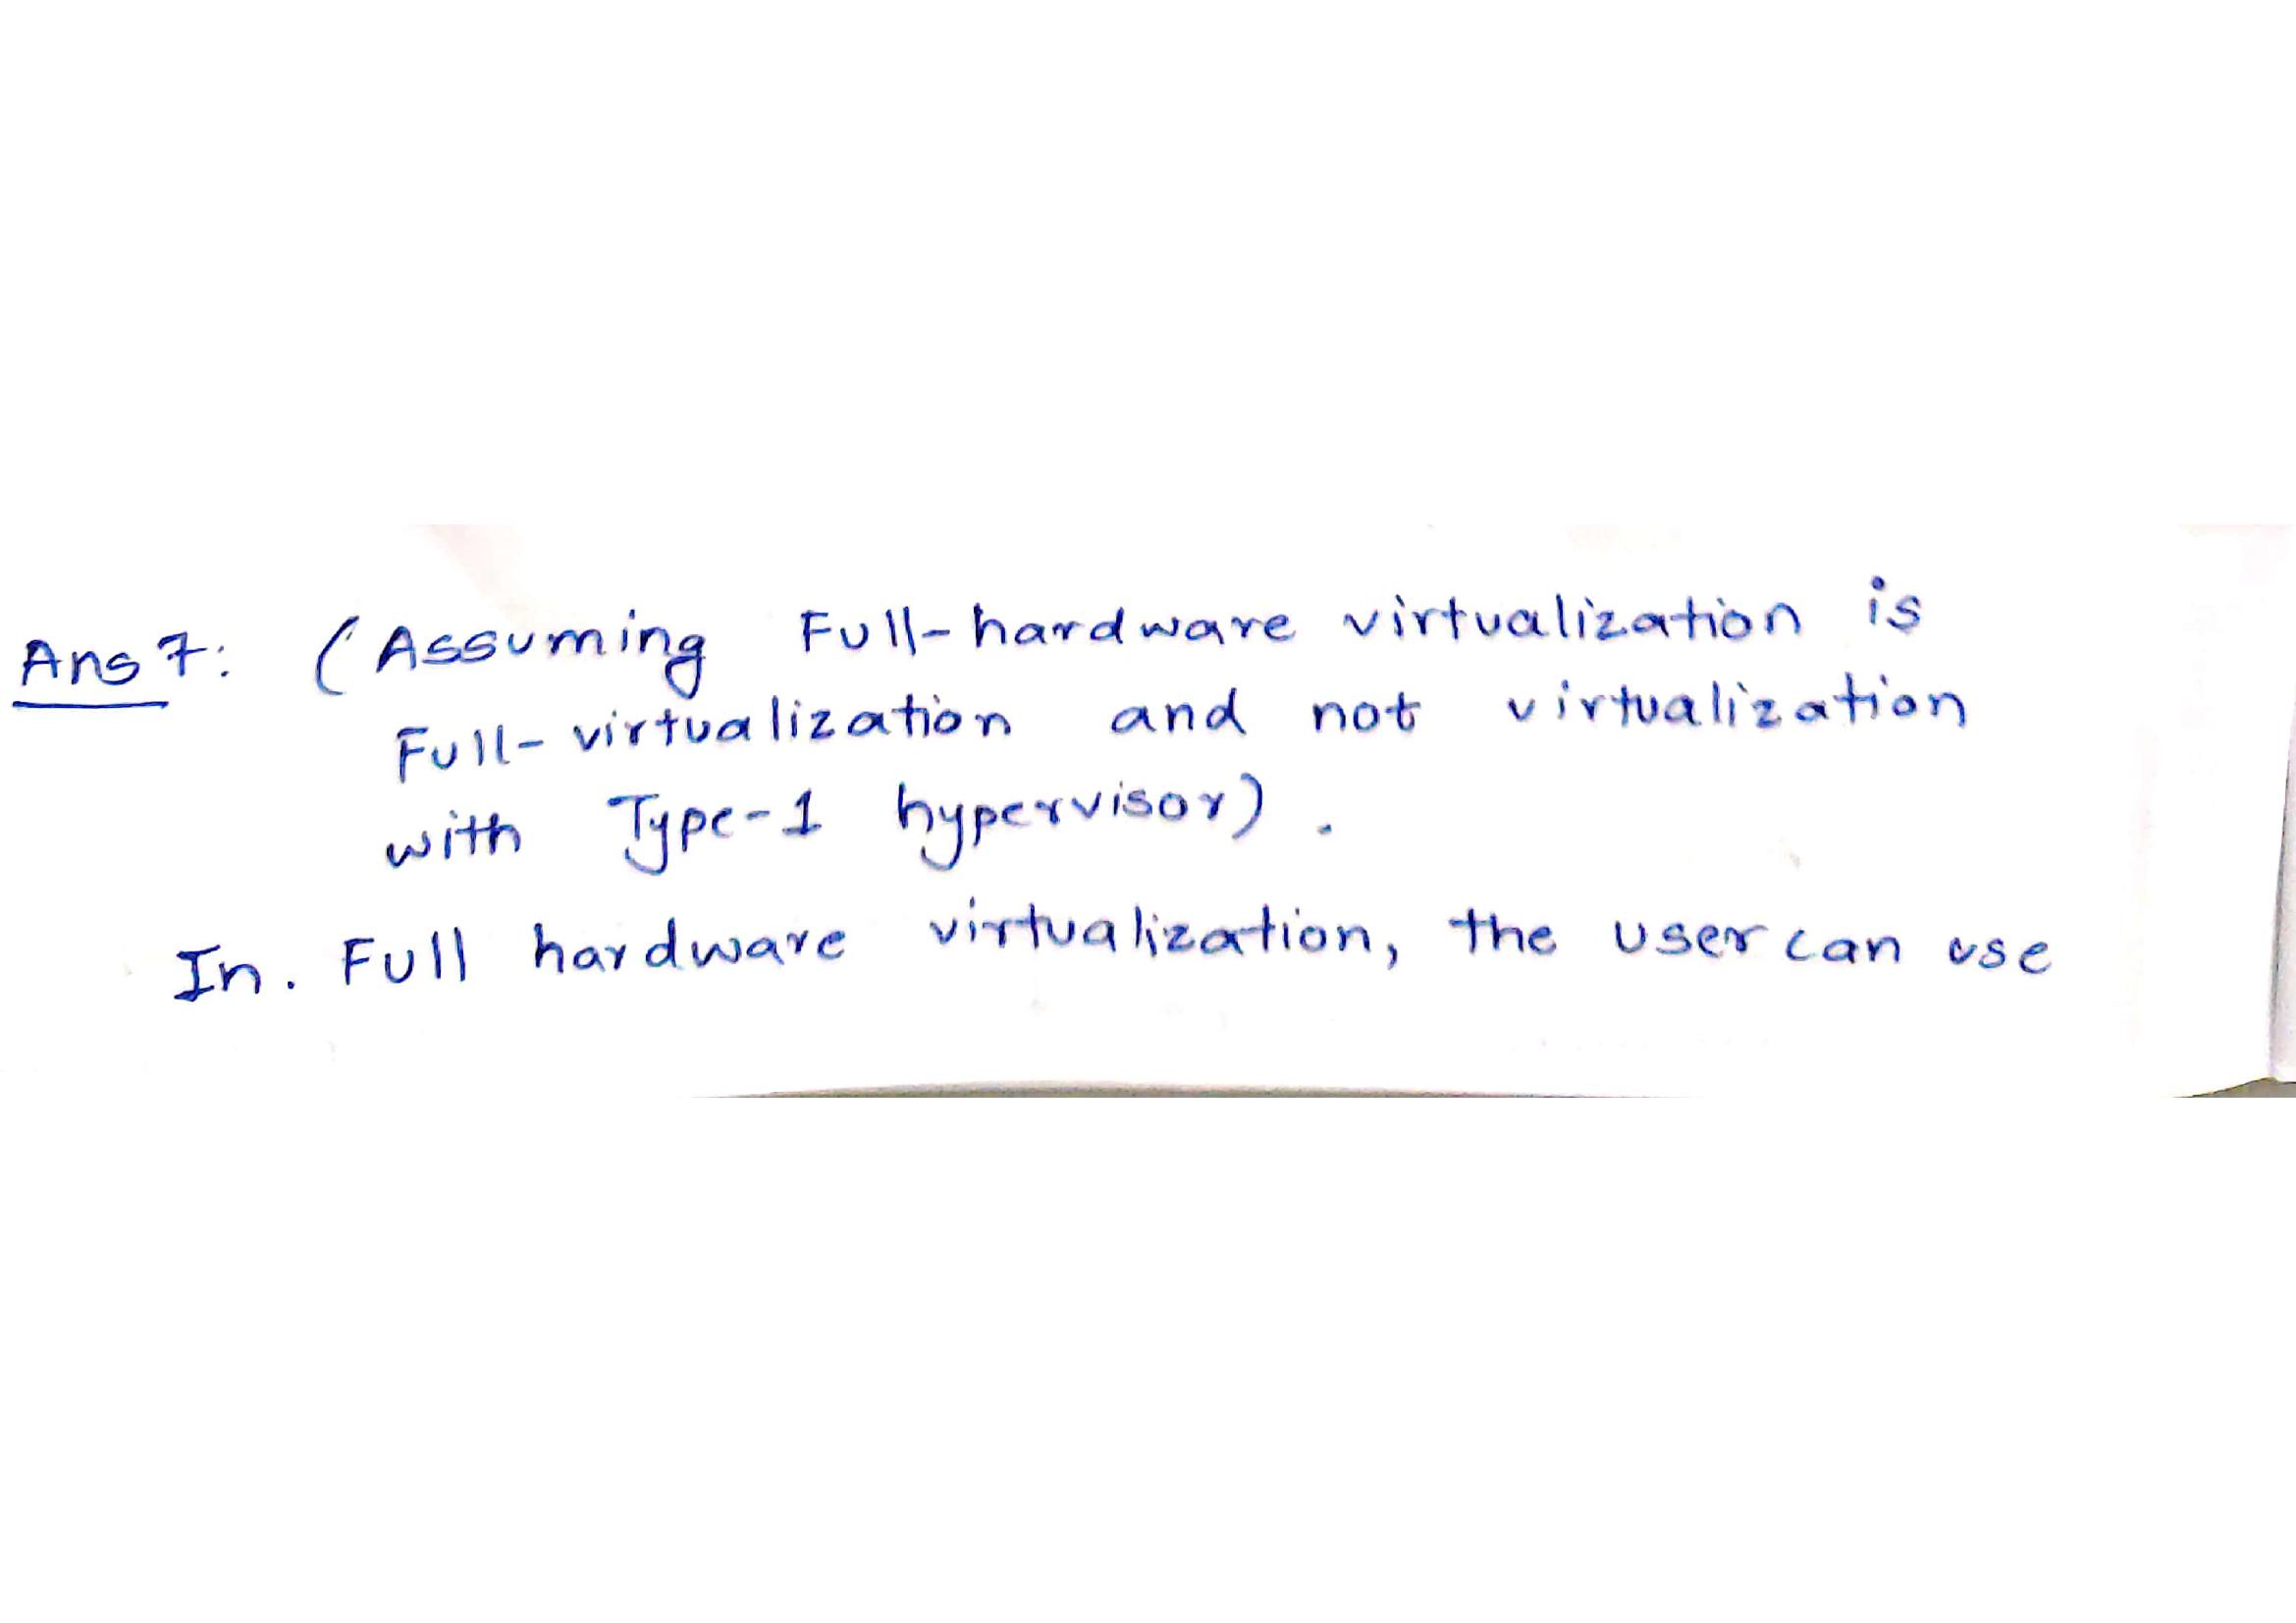 Ans 7: (Assuming Full-hardware virtualization is
Full-virtualization and not virtualization
with Type-1 hypervisor).
In. Full hardware virtualization, the user can use